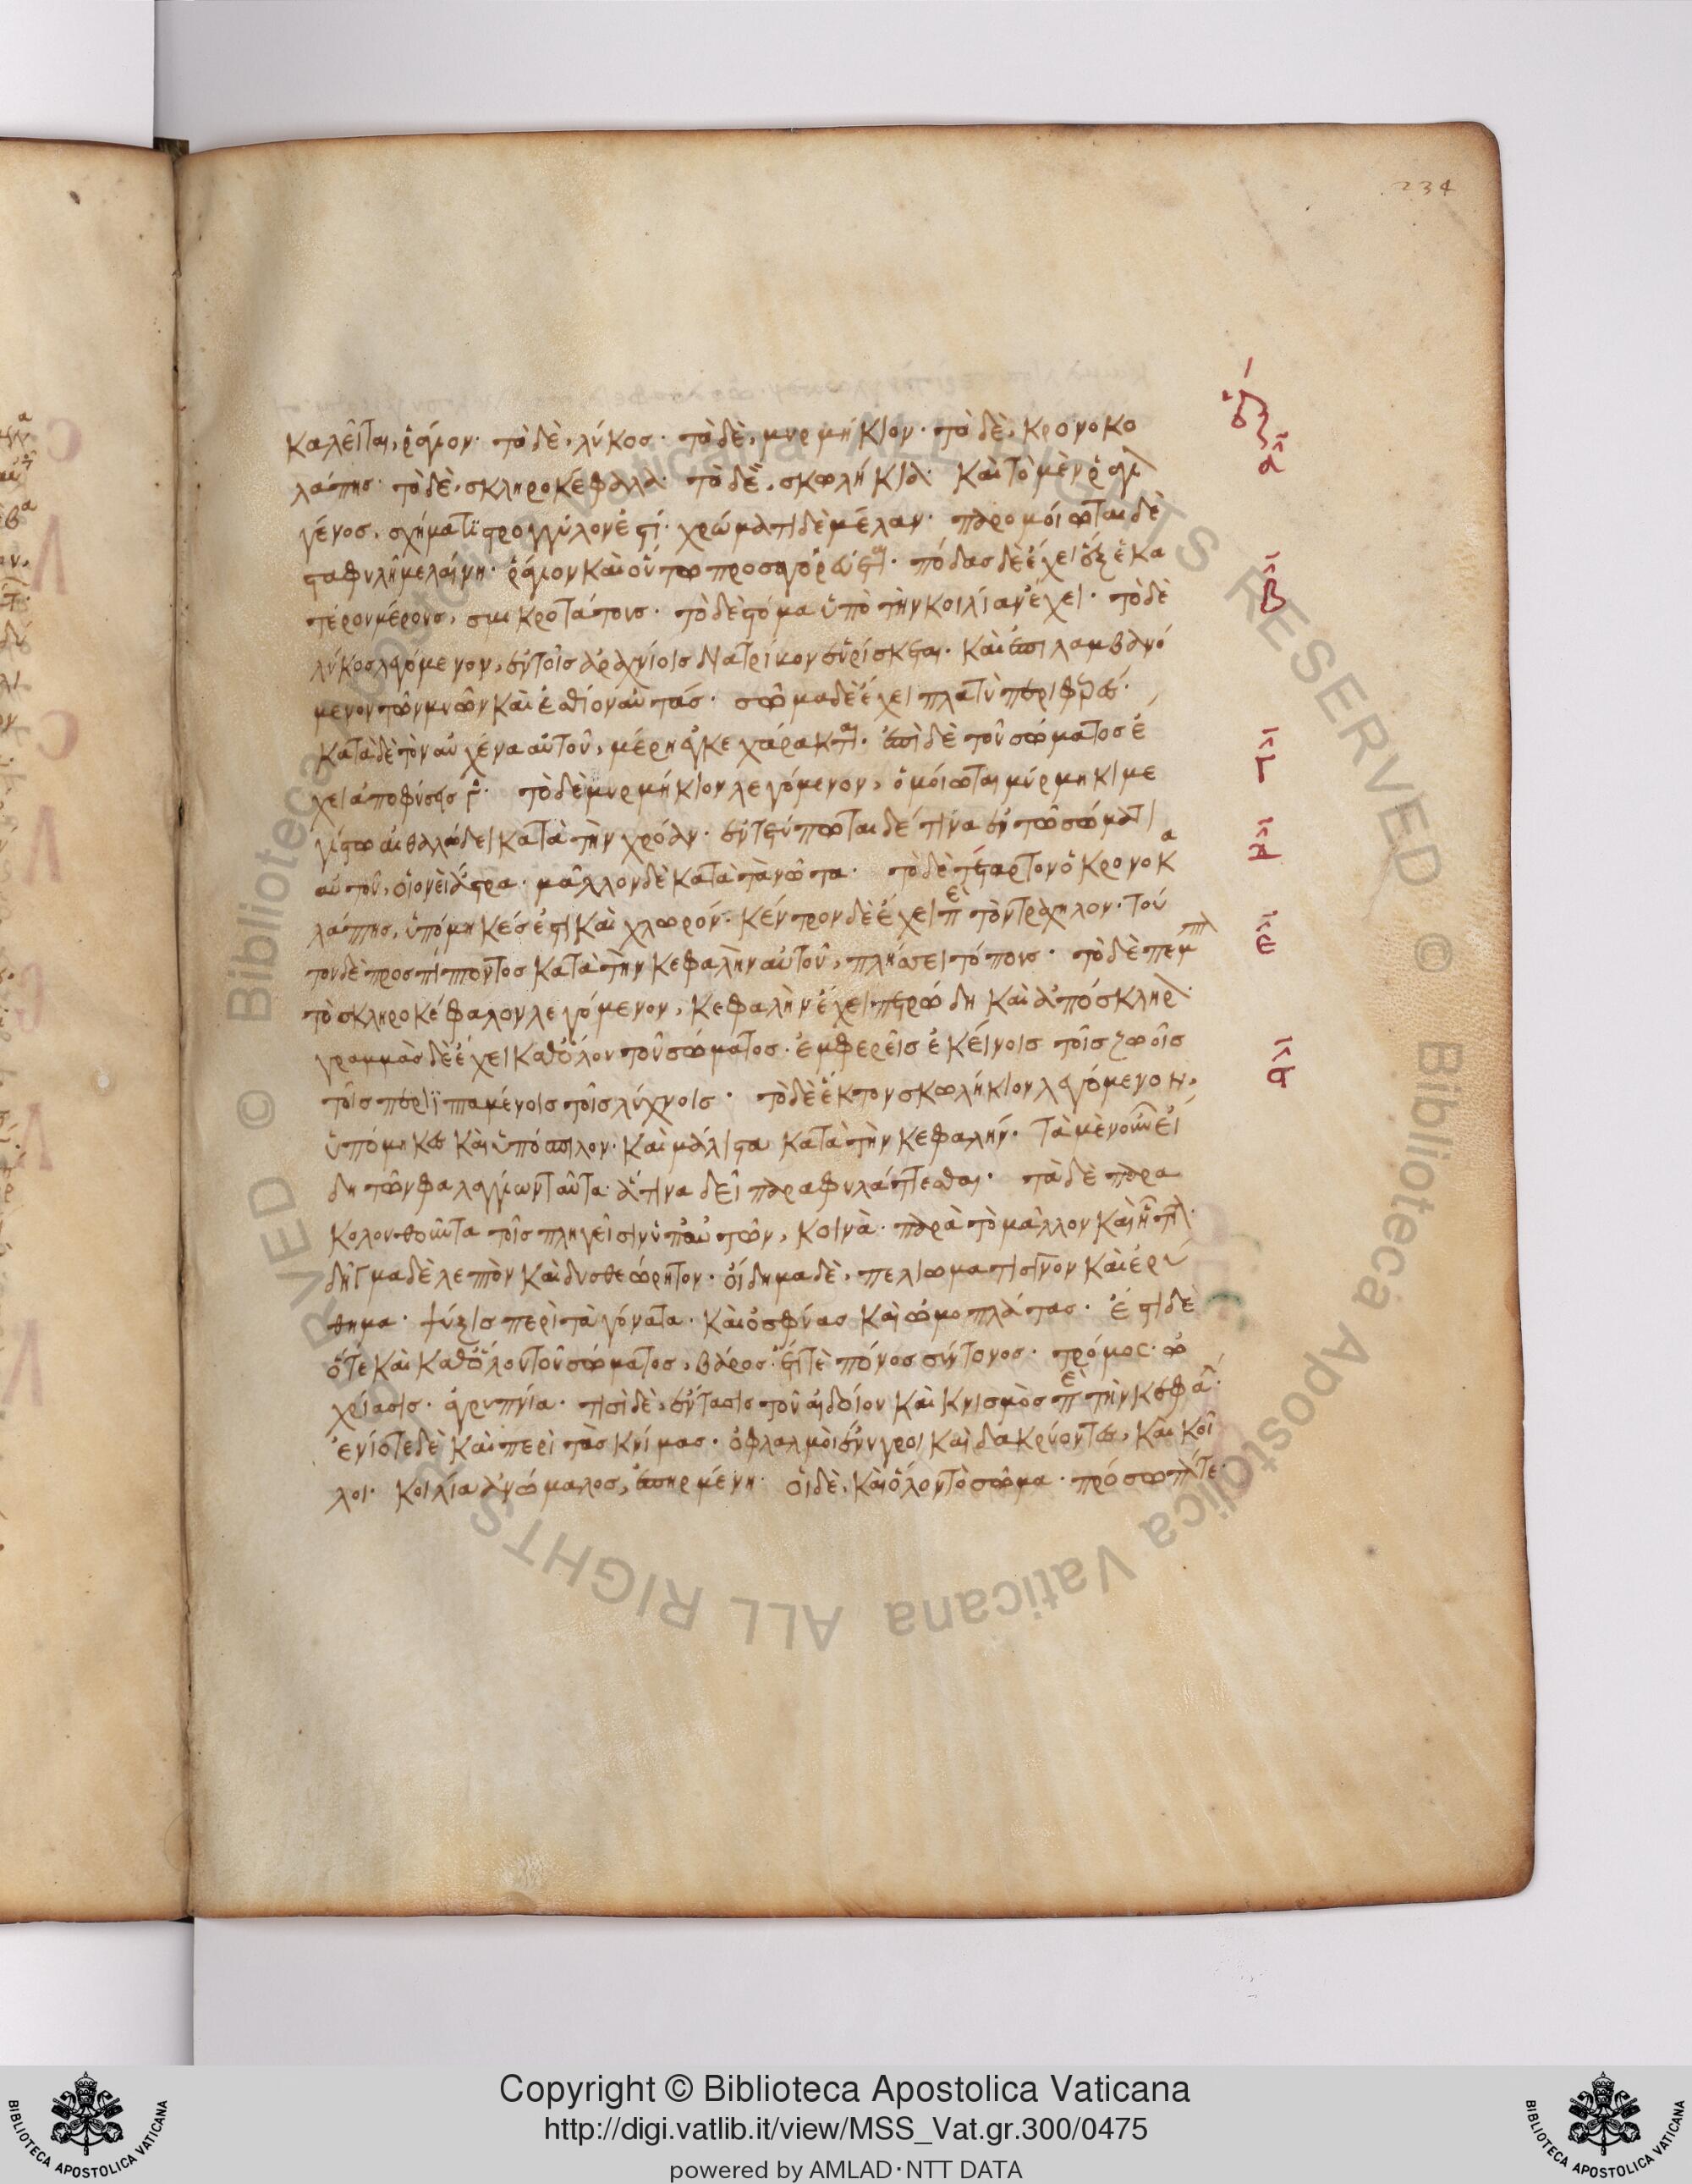 234
καλεῖται, ῥάγιον· τὸ δὲ, λύκος· τὸ δὲ, μυρμήκιον· τὸ δὲ, κρονοκο
λάπτης· τὸ δὲ, σκληροκέφαλα· τὸ δὲ, σκωλήκια· καὶ τὸ μὲν ῥαγι
γένος, σχήματι στρογγύλον ἐστί· χρώματι δὲ μέλαν· παρομοίωται δὲ
σταφυλῇ μελαίνῃ· ῥάγιον καὶ οὕτω προσηγόρευται· πόδας δὲ ἔχει ἐξ ἑκα
τέρου μέρους, σμικροτάτους· τὸ δὲ στόμα ὑπὸ τὴν κοιλίαν ἔχει· τὸ δὲ
λύκος λεγόμενον, ἐν τοῖς ἀραχνίοις εὑρίσκεται· καὶ ἐπιλαμβανό
μενον τῶν μυῶν καὶ ἐσθίον αὐτάς· σῶμα δὲ ἔχει πλατὺ περιφερές·
κατὰ δὲ τὸν αὐχένα αὐτοῦ, μέρη ἐγκεχάρακται· ἐπὶ δὲ τοῦ σώματος ἔ
χει ἀποφύσεις γ· τὸ δὲ μυρμήκιον λεγόμενον, ὁμοίωται μύρμηκι με
γίστω αἰθαλώδει κατὰ τὴν χρόαν· ἐντετύπωται δέ τινα ἐν τῶ σώματι
αὐτοῦ, οἱονεὶ ἄστρα· μᾶλλον δὲ κατὰ τὰ νῶτα· τὸ δὲ τέταρτον ὁ κρονοκα
λάπτης, ὑπόμηκές ἐστι καὶ χλωρόν· κέντρον δὲ ἔχει ἐπὶ τὸν τράχηλον· τού
του δὲ προσπίπτοντος κατὰ τὴν κεφαλὴν αὐτοῦ, πλήσσει τόπους· τὸ δὲ πέμπτ
τὸ σκληροκέφαλον λεγόμενον, κεφαλὴν ἔχει πετρώδη καὶ ἀπόσκληρ
γραμμὰς δὲ ἔχει καθόλου τοῦ σώματος· ἐμφερεῖς ἐκείνοις τοῖς ζώοις
τοῖς περιϊπταμένοις τοῖς λύχνοις· τὸ δὲ ἕκτον σκωλήκιον λεγόμενον,
ὑπόμηκες καὶ ὑπόσπιλον· καὶ μάλιστα κατὰ τὴν κεφαλήν· Τὰ μὲν οὖν εἴ
δη τῶν φαλαγγίων ταῦτα· ἅτινα δεῖ παραφυλάττεσθαι· τὰ δὲ παρα
κολουθοῦντα τοῖς πληγεῖσιν ὑπ' αὐτῶν, κοινὰ· παρὰ τὸ μᾶλλον καὶ ἧττ
δῆγμα δὲ λεπτὸν καὶ δυσθεώρητον· οἴδημα δὲ, πελίωμα τισὶν οὖν καὶ ἐρύ
θημα· ψύξις περὶ τὰ γόνατα· καὶ ὀσφύας καὶ ὠμοπλάτας· ἔστι δὲ
ὅτε καὶ καθόλου τοῦ σώματος, βάρος· ἔστι τε πόνος σύντονος· τρόμος· ὠ
χρίασις· ἀγρυπνία· τισὶ δὲ, ἔντασις τοῦ αἰδοίου καὶ κνισμὸς ἐπὶ τὴν κεφα
ἐνίοτε δὲ καὶ περὶ τὰς κνίμας· ὀφθαλμοὶ ἔνυγροι καὶ δακρύοντες, καὶ κοῖ
λοι· κοιλία ἀνώμαλος, ἐπηρμένη· οἱ δὲ, καὶ ὅλον τὸ σῶμα· πρόσωπόν τε
α
β
γ
δ
ε
ϛ
Copyright © Biblioteca Apostolica Vaticana
http://digi.vatlib.it/view/MSS_Vat.gr.300/0475
powered by AMLAD·NTT DATA
BIBLIOTECA APOSTOLICA VATICANA
BIBLIOTECA APOSTOLICA VATICANA